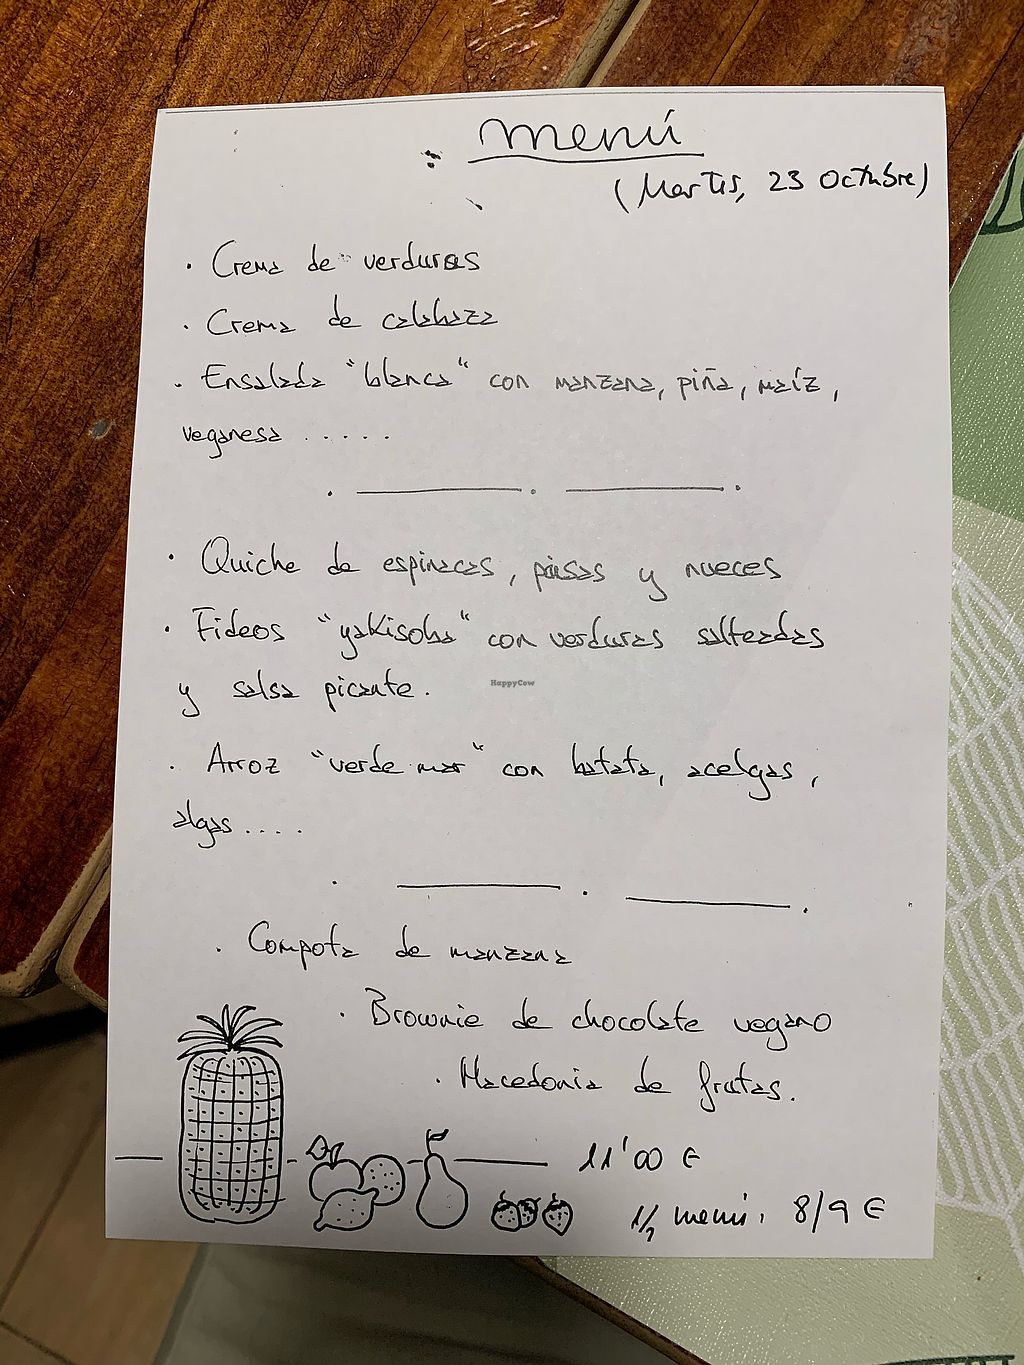 menú
(Martes, 23 Octubre)
· Crema de verduras
· Crema de calabaza
· Ensalada "blanca" con manzana, piña, maíz,
veganesa .....
· Quiche de espinacas, pasas y nueces
· Fideos "yakisoba" con verduras salteadas
y salsa picante.
HappyCow
· Arroz "verde mar" con batata, acelgas,
algas....
· Compota de manzana
· Brownie de chocolate vegano
· Macedonia de frutas.
11'00 €
1/2 menú. 8/9 €